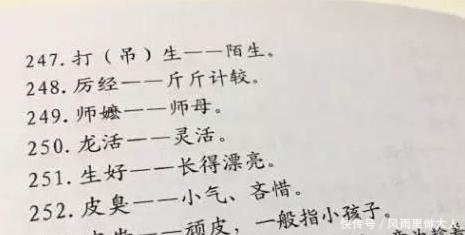 247. 打（吊）生——陌生。
248. 厉经——斤斤计较。
249. 师嬷——师母。
250. 龙活——灵活。
251. 生好——长得漂亮。
252. 皮臭——小气、吝惜。
顽皮，一般指小孩子。
快传号/风雨里做大人